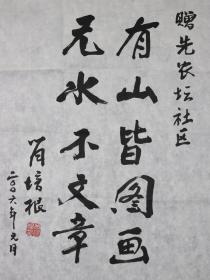 赠先农坛社区
有山皆图画
无水不文章
肖培根
二〇〇六年元月